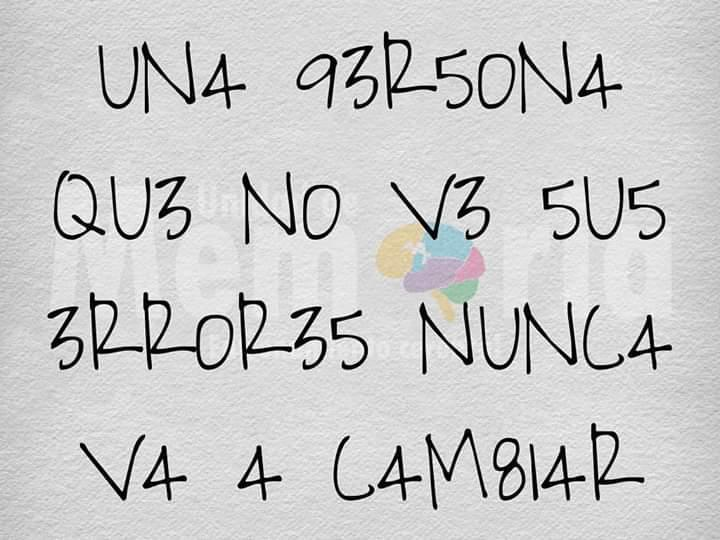 UN4 93R5ON4
QU3 NO V3 5U5
3RROR35 NUNC4
V4 4 C4M8I4R
Unidad de
Memoria